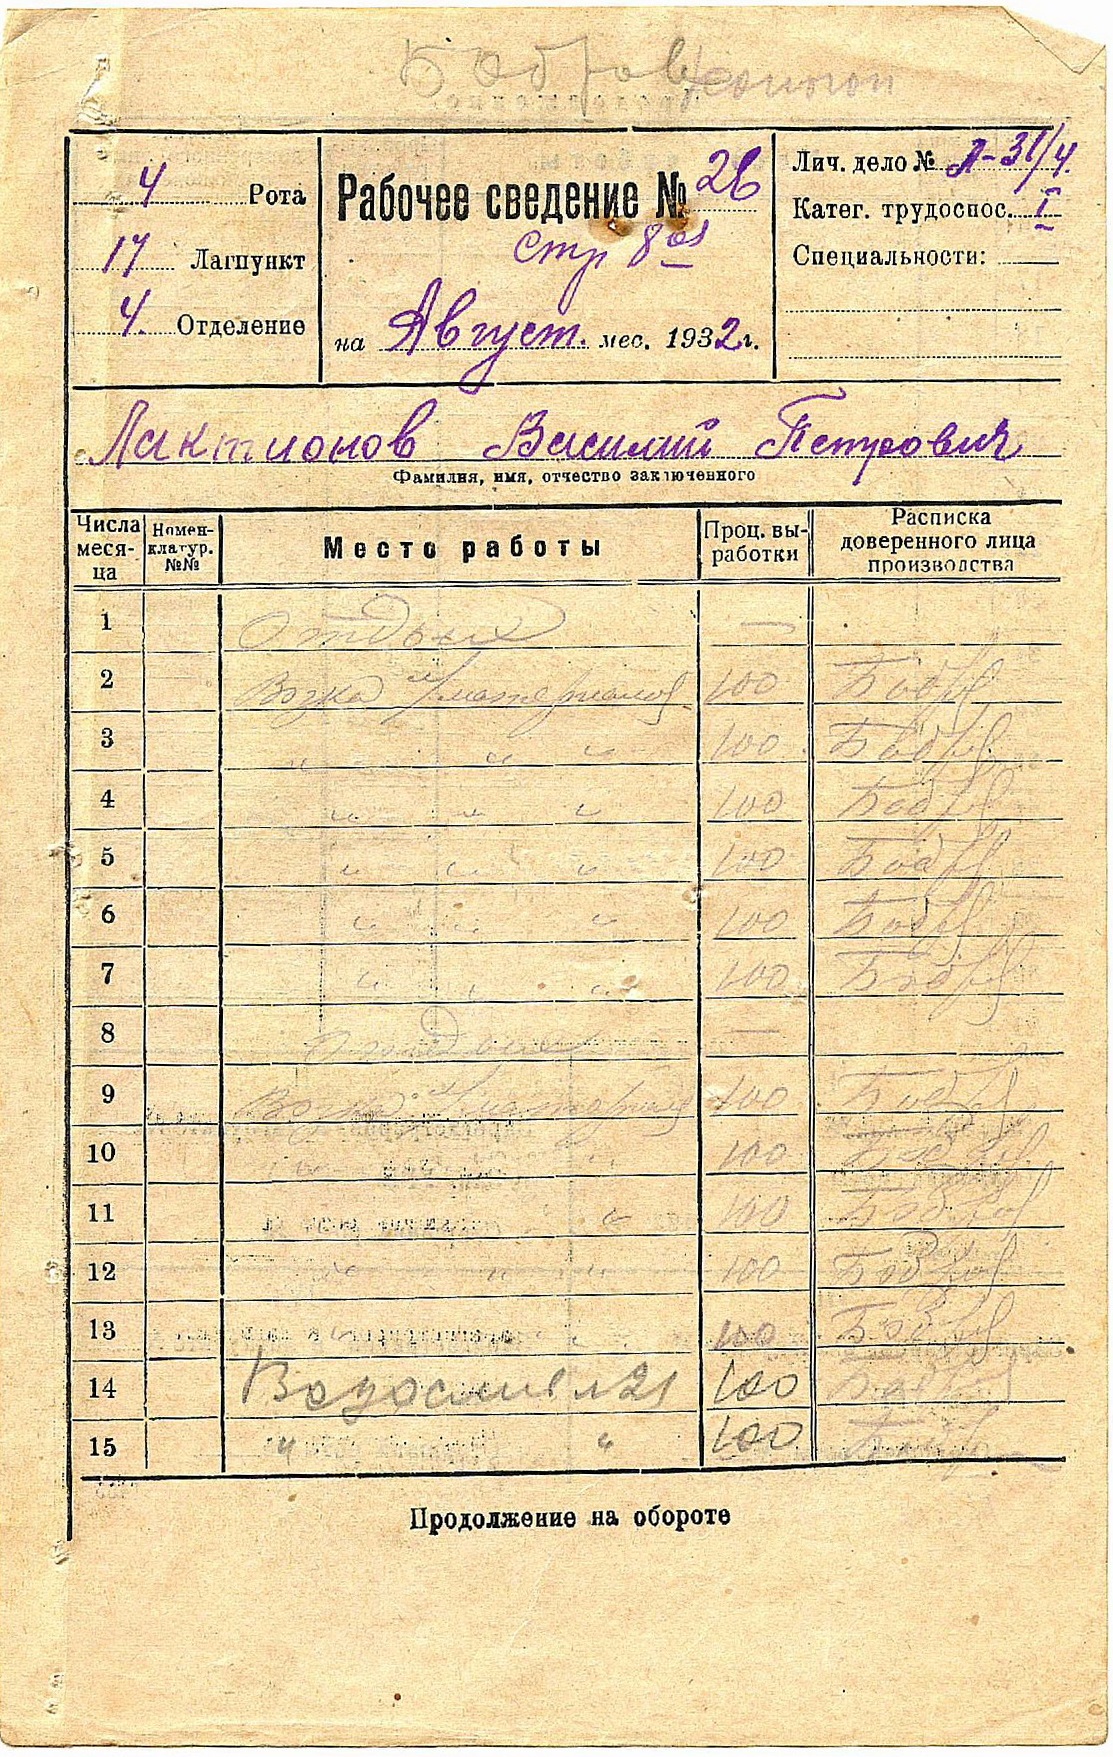 Бобров
4 Рота
17 Лагпункт
4. Отделение
Рабочее сведение № 26
стр 8
на Август. мес. 1932 г.
Лич. дело № Л-31/4.
Катег. трудоспос. I
Специальности:
Лактионов Василий Петрович
Фамилия, имя, отчество заключенного
Числа меся-ца Номен-клатур. №№ Место работы Проц. вы-работки Расписка доверенного лица производства
1 Отдых —
2 Возка материалов 100 Бобров
3 " " " 100 Бобров
4 " " " 100 Бобров
5 " " " 100 Бобров
6 " " " 100 Бобров
7 " " " 100 Бобров
8 Отдых —
9 Возка материал 100 Бобров
10 " " 100 Бобров
11 " 100 Бобров
12 " " " 100 Бобров
13 100 Бобров
14 100 Бобров
15 " " 100 Бобров
Продолжение на обороте